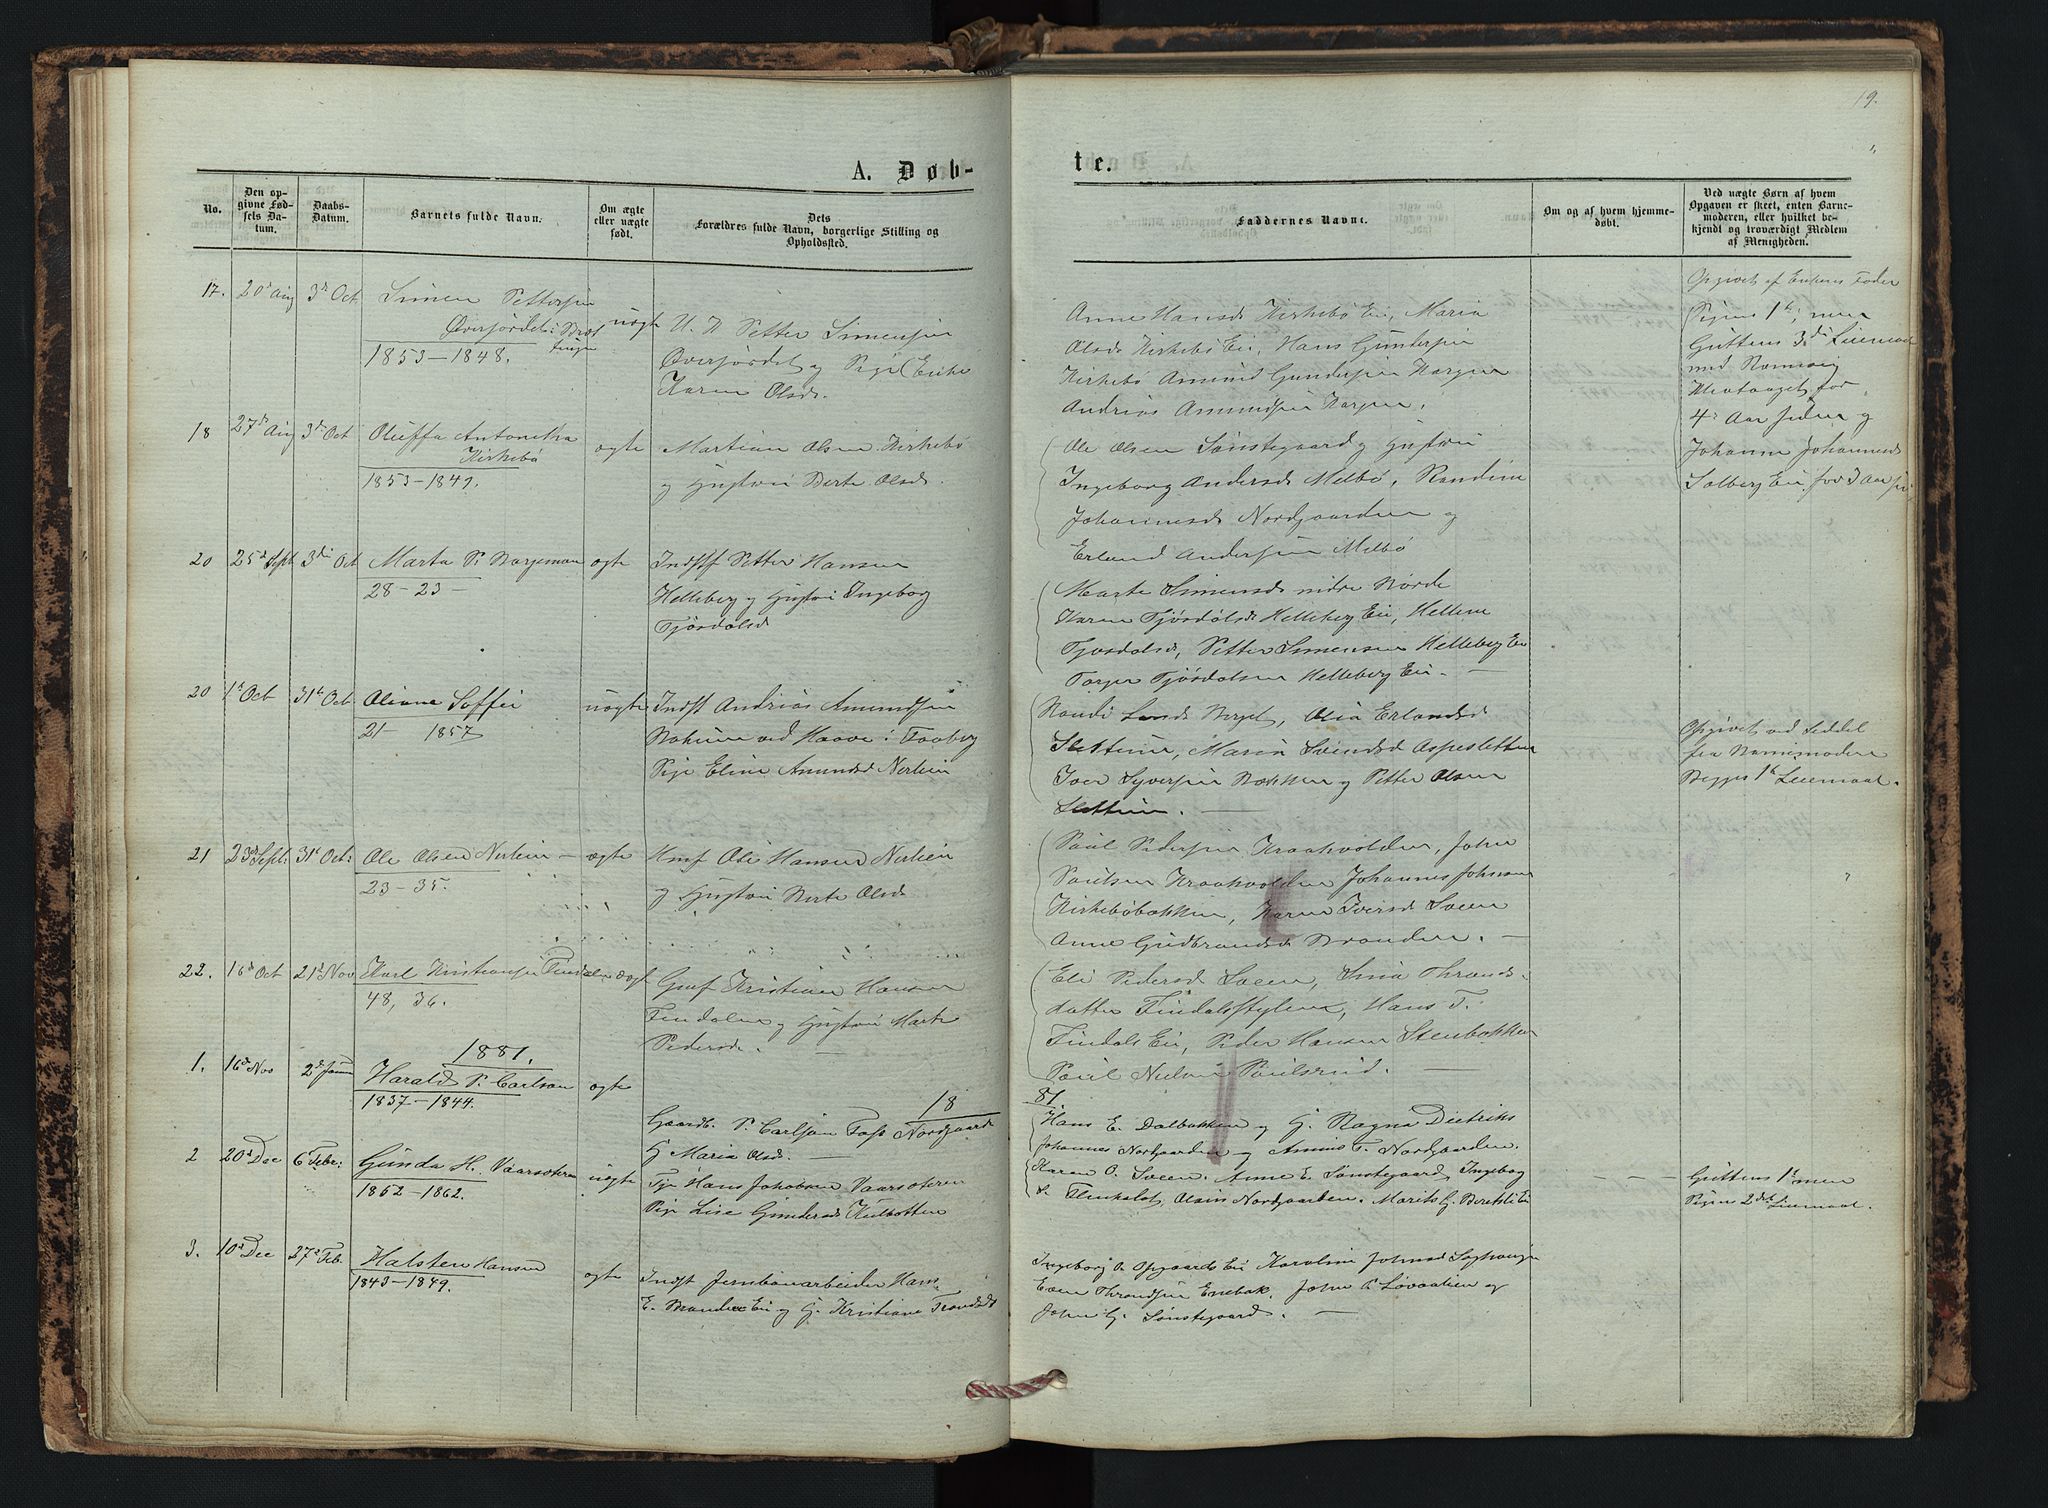 19.
A. Døb-
te.
No.
Den op-
givne Fød-
sels Da-
tum.
Daabs-
Datum.
Barnets fulde Navn.
Om ægte
eller uægte
født.
Dets
Forældres fulde Navn, borgerlige Stilling og
Opholdssted.
Faddernes Navne.
Om og af hvem hjemme-
døbt.
Ved uægte Børn af hvem
Opgaven er skeet, enten Barne-
moderen, eller hvilket be-
kjendt og troværdigt Medlem
af Menigheden.
17. 20d Aug 3d Oct Simen Pettersen
Øverjordet
1853-1848.
uægte
U. K Petter Simensen
Øverjordet og Pige (Enke
Karen Olsd.
Anne Hansd Kirkebø Ei, Maria
Olsd Kirkebø Ei, Hans Gundersen
Kirkebø Amund Gundersen
Andrias Amundsen
Opgivet af Enkens Fader
Pigens 1t, men
Guttens 3di Leiermaal
med
for
4: Aar siden og
Johanne Johannesd
Solberg Ei for 3 Aar
18 27d Aug 3di Oct Oluffa Antonetha
Kirkebø
1853-1849.
ægte
Martian Olsen Kirkebø
og Hustru Berte Olsd.
Ole Olsen Sønstegaard og Hustru
Ingeborg Andersd Melbø, Randine
Johannesd Nordgaarden og
Erland Andersen Melbø
20 25d Sept 3di Oct Marta P. Borgeman
28-23-
ægte
Indst Petter Hansen
Helleberg og Hustru Ingeborg
Tjøsdolsd
Marte Simensd
Karen Tjøsdolsd Helleberg Ei, Hellene
Tjøsdolsd, Petter Simensen Helleberg Ei
Torger Tjøsdolsen Helleberg Ei. -
20 1t Oct 31t Oct. Oliane Soffie
21- 1857
uægte
Indst Andrias Amundsen
ved Haave i Faaberg
Pige Eline Amundsd Nerlien
Randi Larsd Berget, Olia Erlandsd
Slettum, Maria Svendsd Aspesletten
Iver Syversen Bakken og Petter Olsen
Slettum. -
Opgivet ved Seddel
fra Barnemoderen
Begges 1t Leiermaal.
21 23d Sept: 31t Oct: Ole Olsen Nerlien -
23-35.
ægte
Huusf Ole Hansen Nerlien
og Hustru Berte Olsd
Poul Pedersen Kraakvolden, John
Poulsen Kraakvolden Johannes Johnsen
Kirkebøbakken, Karen Iversd Loeen
Anne Gudbrandsd Branden. -
22. 16d Oct 21d Nov Karl Kristiansen Findalen ægt
48, 36.
Gmf Kristian Hansen
Findalen og Hustru Marte
Pedersd. -
Eli Pedersd Loeen, Trands-
datter Findalsstylene, Hans T.
Findals Ei, Peder Hansen Stenbakken
Poul Nielsen Poulsrud. -
1881.
18
81
1. 16d Nov 2d Janu Harald P. Carlson
1837-1844.
ægte
Gaardb. P. Carlsen Foss Nordgaard
G Maria Olsd. -
Hans E. Dalbakken og G. Ragna Diedriks
Johannes Nordgaarden og Annis T. Nordgaarden.
2 20d Dec 6 Febr: Gunda H. Vaarsæteren
1852-1862.
uægte
Tje Hans Jakobsen Vaarsæteren
Pige Lise Gundersd Kulbotten
Karen O. Loeen. Anne E. Sønstegaard, Ingeborg
Olaus Nordgaarden. Marits G. Ei
Guttens 1t men
Pigen 2det Leiermaal.
3. 10d Dec 27d Feb. Halsten Hansen
1843-1849.
ægte
Indst Jernbanearbeider Hans
E. Branden Ei og G. Kristiane Trondsd
Ingeborg O. Opgaards Ei Karoline Johnsd
Even Thrandsen Enebak. John P Løvaalien og
John G. Sønstegaard. -